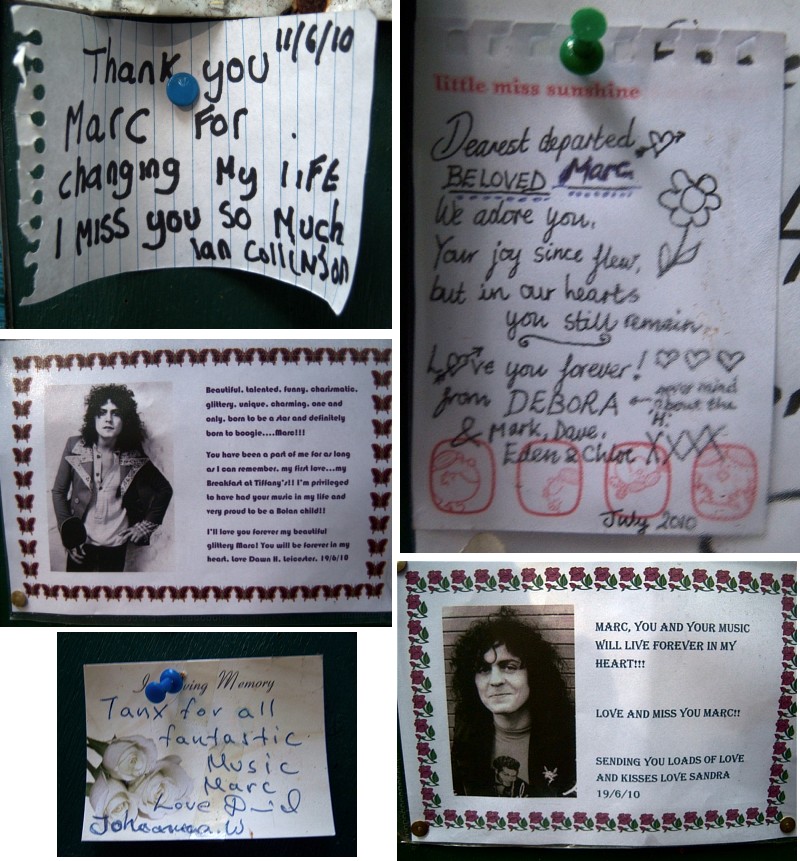 11/6/10
Thank you
Marc For
changing My liFE
I MISS you SO MUCH
Ian CollINSon
little miss sunshine
Dearest departed
BELOVED Marc
We adore you,
Your joy since flew,
but in our hearts
you still remain.
Love you forever!
from DEBORA ← never mind
about the
'H'
& Mark, Dave,
Eden & Chloe XXXX
July 2010
Beautiful, talented, funny, charismatic,
glittery, unique, charming, one and
only, born to be a star and definitely
born to boogie....Marc!!!
You have been a part of me for as long
as I can remember, my first love...my
Breakfast at Tiffany's!! I'm privileged
to have had your music in my life and
very proud to be a Bolan child!!
I'll love you forever my beautiful
glittery Marc! You will be forever in my
heart. Love Dawn H. Leicester. 19/6/10
MARC, YOU AND YOUR MUSIC
WILL LIVE FOREVER IN MY
HEART!!!
LOVE AND MISS YOU MARC!!
SENDING YOU LOADS OF LOVE
AND KISSES LOVE SANDRA
19/6/10
Memory
Tanx for all
fantastic
Music
Marc
Love
W